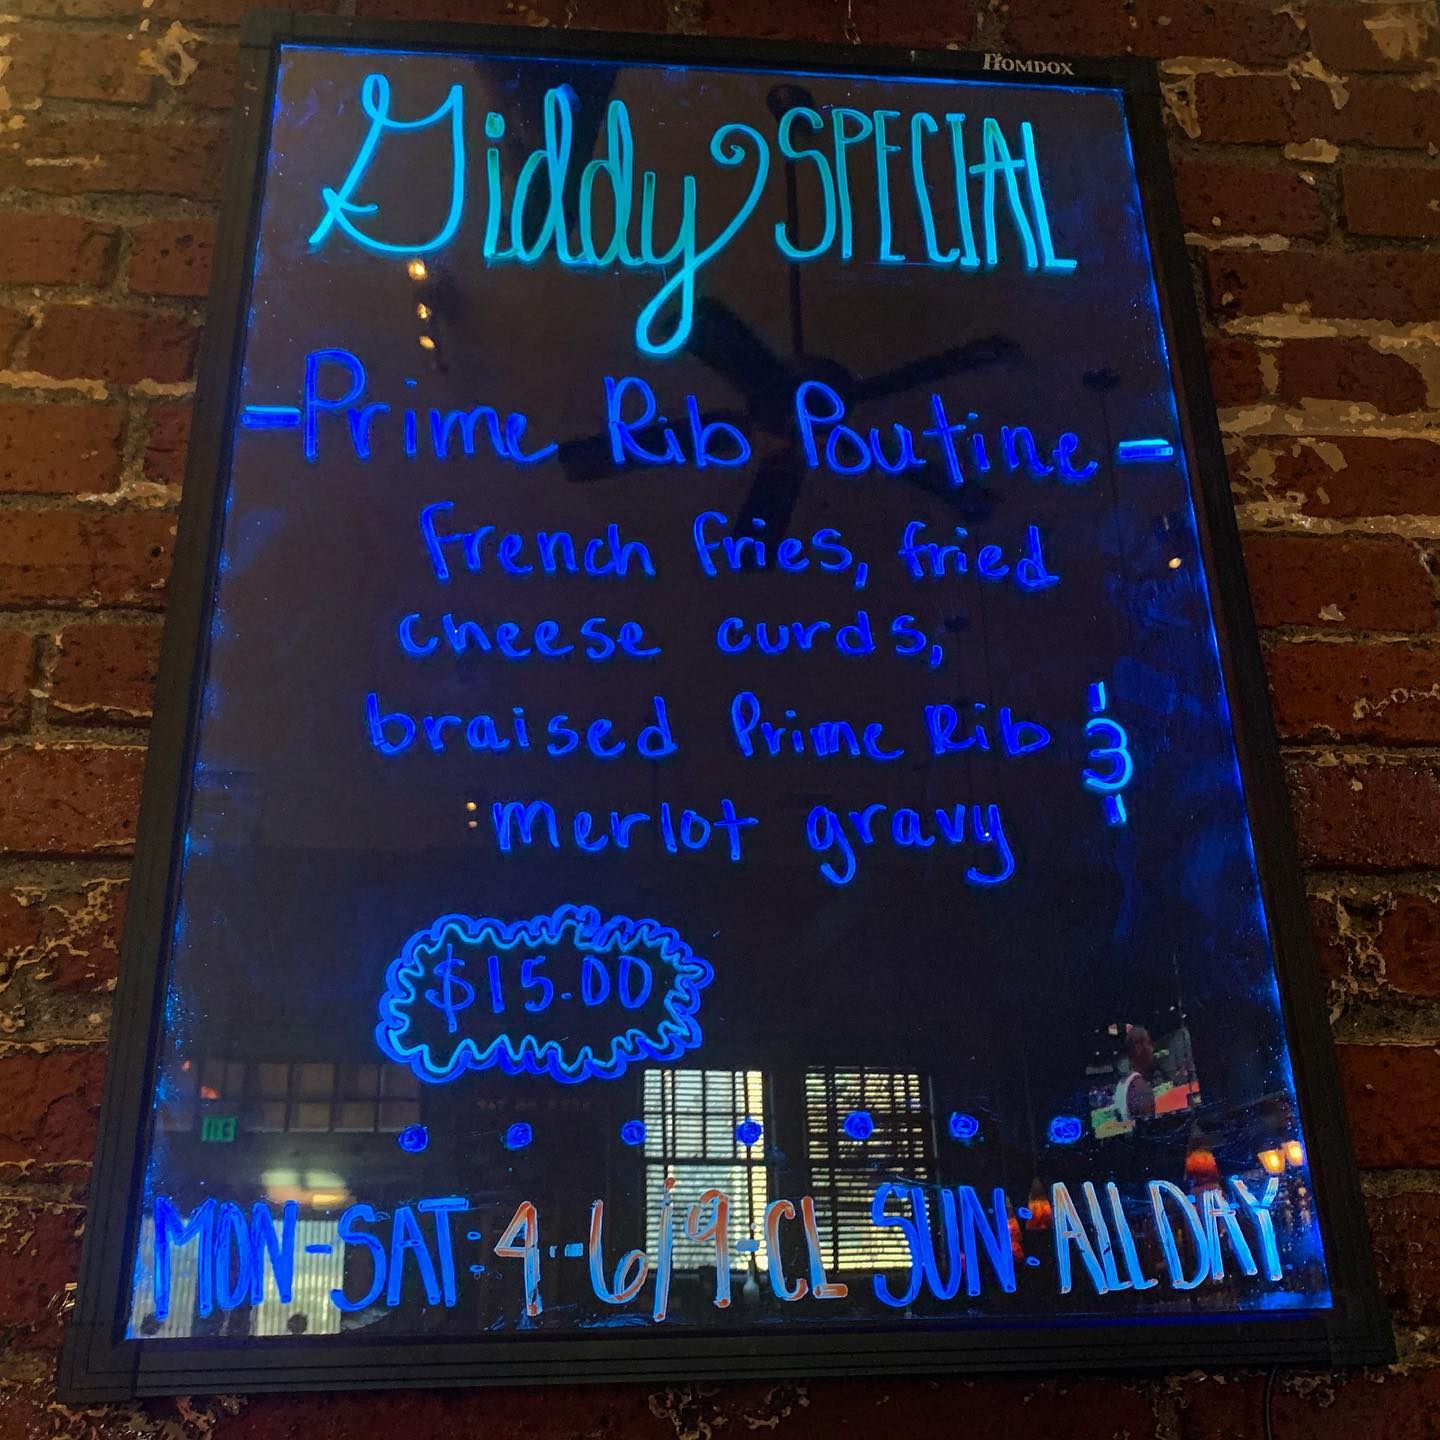 HOMDOX
Giddy SPECIAL
- Prime Rib Poutine -
French fries, fried
cheese curds,
braised Prime Rib &
merlot gravy
$15.00
MON-SAT: 4-6/9-CL SUN: ALL DAY